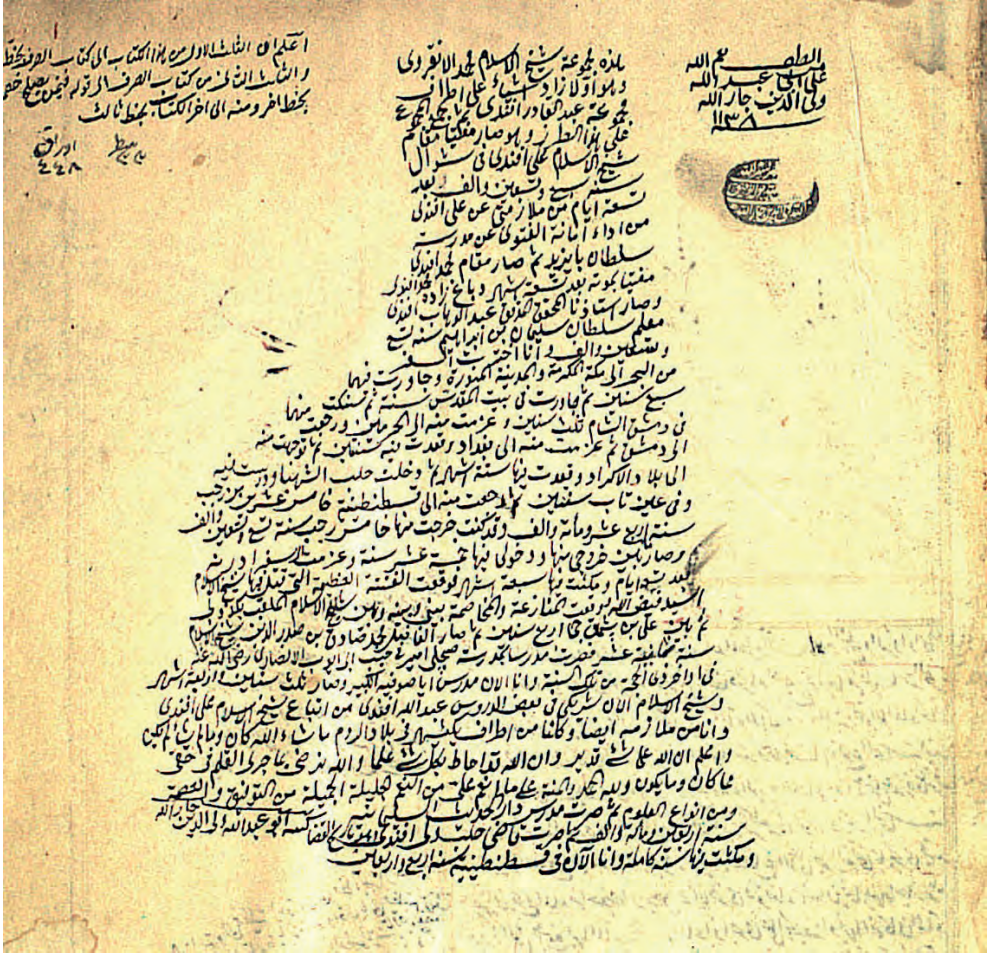 اعلم ان الثلث الاول من هذا الكتاب الى كتاب الصرف بخط
والثلث الثانى من كتاب الصرف الى قوله فيمن يصلح خصما
بخط اخر ومنه الى اخر الكتاب بخط ثالث
اوراق
٤٤٨
سطر
٣٣
الله
على ابى عبد الله
ولى الدين جار الله
١١٣٨
هذه مجموعة شيخ الاسلام محمد الانقروى
وهو اولا زاد اشياء على اطراف
مجموعة عبد القادر افندى ثم
على هذا الطرز وهو صار مفتيا مقام
شيخ الاسلام على افندى فى شوال
سنة سبع وتسعين والف بعد
تسعة ايام من ملازمتى عن على افندى
من اداء امانة الفتوى عن مدرسة
سلطان بايزيد ثم صار مقام محمد افندى
مفتيا بموته بعد تسعة اشهر دباغ زاده محمد افندى
وصار استاذنا المحقق المدقق عبد الوهاب افندى
معلم سلطان سليمان بن ابراهيم سنة تسع
وتسعين والف وانا اخترت السفر
من البحر الى مكة المكرمة والمدينة المنورة وجاورت فيهما
سبع سنين ثم جاورت فى بيت المقدس سنة ثم سكنت
فى دمشق الشام ثلث سنين وعزمت منه الى الحرمين ورجعت منها
الى دمشق ثم عزمت منه الى بغداد وقعدت فيه سنتين ثم توجهت منه
الى بلاد الاكراد وقعدت فيها ستة اشهر ثم دخلت حلب الشهباء ودرست فيه
وفى عينتاب سنتين ثم رجعت منه الى قسطنطنية خامس عشرين من رجب
سنة اربع عشر ومائة والف وقد كنت خرجت منها خامس رجب سنة تسع وتسعين والف
وصار بين خروجى منها ودخولى فيها خمسة عشر سنة وعزمت السفر ادرنه
بعد ايام ومكثت بها سبعة اشهر فوقعت الفتنة العظيمة التى قتل بها شيخ الاسلام
السيد فيض الله ووقعت المنازعة والمخاصمة بينى وبينه وبين شيخ الاسلام
ثم بين على اربع سنين ثم صار القاضى محمد صادق بن صدر الدين شيخ الاسلام
سنة تسعة عشر فصرت مدرسا بمدرسة فى حبيب ابى ايوب الانصارى رضى الله عنه
فى اواخر ذى الحجة من تلك السنة وانا الان مدرس اياصوفيه الكبير وصار ثلث سنين واربعة اشهر
وشيخ الاسلام الان شريكى فى بعض الدروس عبد الله افندى من اتباع شيخ الاسلام على افندى
وانا من ملازميه ايضا وكلنا من اطراف يكيشهر فى بلاد الروم ما شاء الله كان وما لم يشأ لم يكن
واعلم ان الله على كل شئ قدير وان الله قد احاط بكل شئ علما والله يرضى بما جرى القلم فى حقى
مما كان وما يكون ولله الحمد والمنة على ما انعم على من النعم الجليلة الجميلة من التوفيق
ومن انواع العلوم ثم صرت مدرس دار الحديث السليمانيه
سنة اربعين ومائة والف ثم صرت قاضى حلب كتبه ابو عبد الله ولى الدين جار الله
ومكثت فيها سنة كاملة وانا الان فى قسطنطينيه سنة اربع واربعين